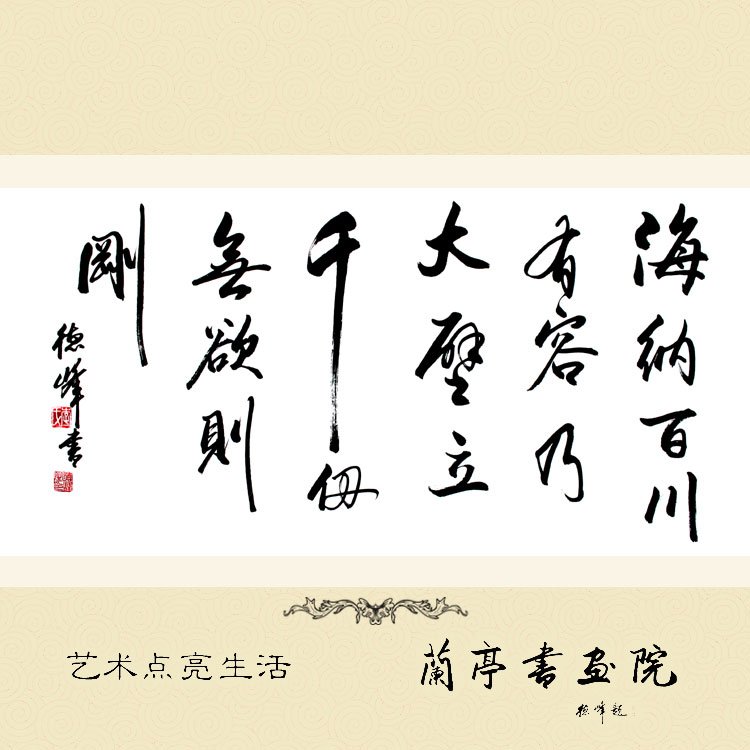 海納百川
有容乃
大壁立
千仞
無欲則
剛
德峰书
艺术点亮生活
蘭亭书画院
德峰题